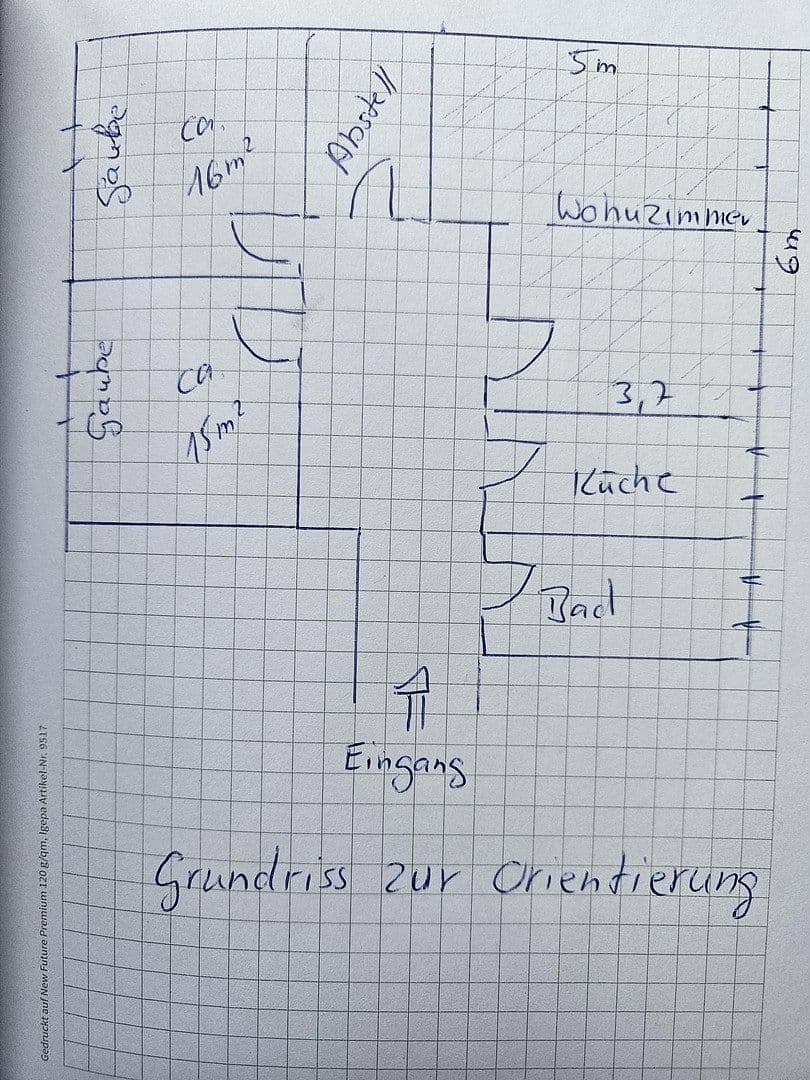 5 m
Gaube
ca.
16 m²
Abstell
Wohnzimmer
6 m
Gaube
ca.
15 m²
3,7
Küche
Bad
Eingang
Grundriss zur Orientierung
Gedruckt auf New Future Premium 120 g/qm, Igepa Artikel-Nr. 9517